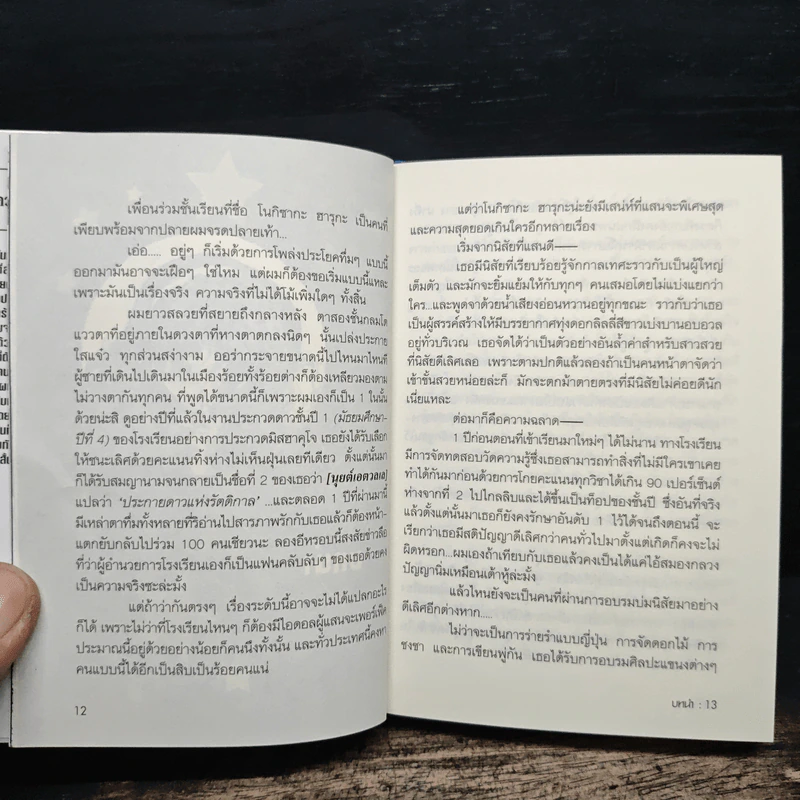 เพื่อนร่วมชั้นเรียนที่ชื่อ โนกิซากะ ฮารุกะ เป็นคนที่
เพียบพร้อมจากปลายผมจรดปลายเท้า...
เอ่อ..... อยู่ๆ ก็เริ่มด้วยการโพล่งประโยคที่มๆ แบบนี้
ออกมามันอาจจะเฝือๆ ใช่ไหม แต่ผมก็ต้องขอเริ่มแบบนี้แหละ
เพราะมันเป็นเรื่องจริง ความจริงที่ไม่ได้โม้เพิ่มใดๆ ทั้งสิ้น
ผมยาวสลวยที่สยายถึงกลางหลัง ตาสองชั้นกลมโต
แววตาที่อยู่ภายในดวงตาที่หางตาตกลงนิดๆ นั้นเปล่งประกาย
ใสแจ๋ว ทุกส่วนสง่างาม ออร่ากระจายขนาดนี้ไปไหนมาไหนที
ผู้ชายที่เดินไปเดินมาในเมืองร้อยทั้งร้อยต่างก็ต้องเหลียวมองตาม
ไม่วางตากันทุกคน ที่พูดได้ขนาดนี้ก็เพราะผมเองก็เป็น 1 ในนั้น
ด้วยน่ะสิ ดูอย่างปีที่แล้วในงานประกวดดาวชั้นปี 1 (มัธยมศึกษา-
ปีที่ 4) ของโรงเรียนอย่างการประกวดมิสฮาคุโจ เธอยังได้รับเลือก
ให้ชนะเลิศด้วยคะแนนทิ้งห่างไม่เห็นฝุ่นเลยทีเดียว ตั้งแต่นั้นมา
ก็ได้รับสมญานามจนกลายเป็นชื่อที่ 2 ของเธอว่า [นุยต์เอตวลเล]
แปลว่า 'ประกายดาวแห่งรัตติกาล' ...และตลอด 1 ปีที่ผ่านมานี้
มีเหล่าตาที่มทั้งหลายที่ริอ่านไปสารภาพรักกับเธอแล้วก็ต้องหน้า-
แตกยับกลับไปร่วม 100 คนเชียวนะ ลองอีหรอบนี้สงสัยข่าวลือ
ที่ว่าผู้อำนวยการโรงเรียนเองก็เป็นแฟนคลับลับๆ ของเธอด้วยคง
เป็นความจริงซะล่ะมั้ง
แต่ถ้าว่ากันตรงๆ เรื่องระดับนี้อาจจะไม่ได้แปลกอะไร
ก็ได้ เพราะไม่ว่าที่โรงเรียนไหนๆ ก็ต้องมีไอดอลผู้แสนจะเพอร์เฟ็ค
ประมาณนี้อยู่ด้วยอย่างน้อยก็คนนึงทั้งนั้น และทั่วประเทศนี้คงหา
คนแบบนี้ได้อีกเป็นสิบเป็นร้อยคนแน่
12
แต่ว่าโนกิซากะ ฮารุกะน่ะยังมีเสน่ห์ที่แสนจะพิเศษสุด
และความสุดยอดเกินใครอีกหลายเรื่อง
เริ่มจากนิสัยที่แสนดี——
เธอมีนิสัยที่เรียบร้อยรู้จักกาลเทศะราวกับเป็นผู้ใหญ่
เต็มตัว และมักจะยิ้มแย้มให้กับทุกๆ คนเสมอโดยไม่แบ่งแยกว่า
ใคร...และพูดจาด้วยน้ำเสียงอ่อนหวานอยู่ทุกขณะ ราวกับว่าเธอ
เป็นผู้สรรค์สร้างให้มีบรรยากาศทุ่งดอกลิลลี่สีขาวเบ่งบานอบอวล
อยู่ทั่วบริเวณ เธอจัดได้ว่าเป็นตัวอย่างอันล้ำค่าสำหรับสาวสวย
ที่นิสัยดีเลิศเลอ เพราะตามปกติแล้วลองถ้าเป็นคนหน้าตาจัดว่า
เข้าขั้นสวยหน่อยล่ะก็ มักจะตกม้าตายตรงที่มีนิสัยไม่ค่อยดีนัก
เนี่ยแหละ
ต่อมาก็คือความฉลาด——
1 ปีก่อนตอนที่เข้าเรียนมาใหม่ๆ ได้ไม่นาน ทางโรงเรียน
มีการจัดทดสอบวัดความรู้ซึ่งเธอสามารถทำสิ่งที่ไม่มีใครเขาเคย
ทำได้กันมาก่อนด้วยการโกยคะแนนทุกวิชาได้เกิน 90 เปอร์เซ็นต์
ห่างจากที่ 2 ไปไกลลิบและได้ขึ้นเป็นท็อปของชั้นปี ซึ่งอันที่จริง
แล้วตั้งแต่นั้นมาเธอก็ยังคงรักษาอันดับ 1 ไว้ได้จนถึงตอนนี้ จะ
เรียกว่าเธอมีสติปัญญาดีเลิศกว่าคนทั่วไปมาตั้งแต่เกิดก็คงจะไม่
ผิดหรอก...ผมเองถ้าเทียบกับเธอแล้วคงเป็นได้แค่ไอ้สมองกลวง
ปัญญานิ่มเหมือนเต้าหู้ล่ะมั้ง
แล้วไหนยังจะเป็นคนที่ผ่านการอบรมบ่มนิสัยมาอย่าง
ดีเลิศอีกต่างหาก.....
ไม่ว่าจะเป็นการร่ายรำแบบญี่ปุ่น การจัดดอกไม้ การ
ชงชา และการเขียนพู่กัน เธอได้รับการอบรมศิลปะแขนงต่างๆ
บทนำ : 13